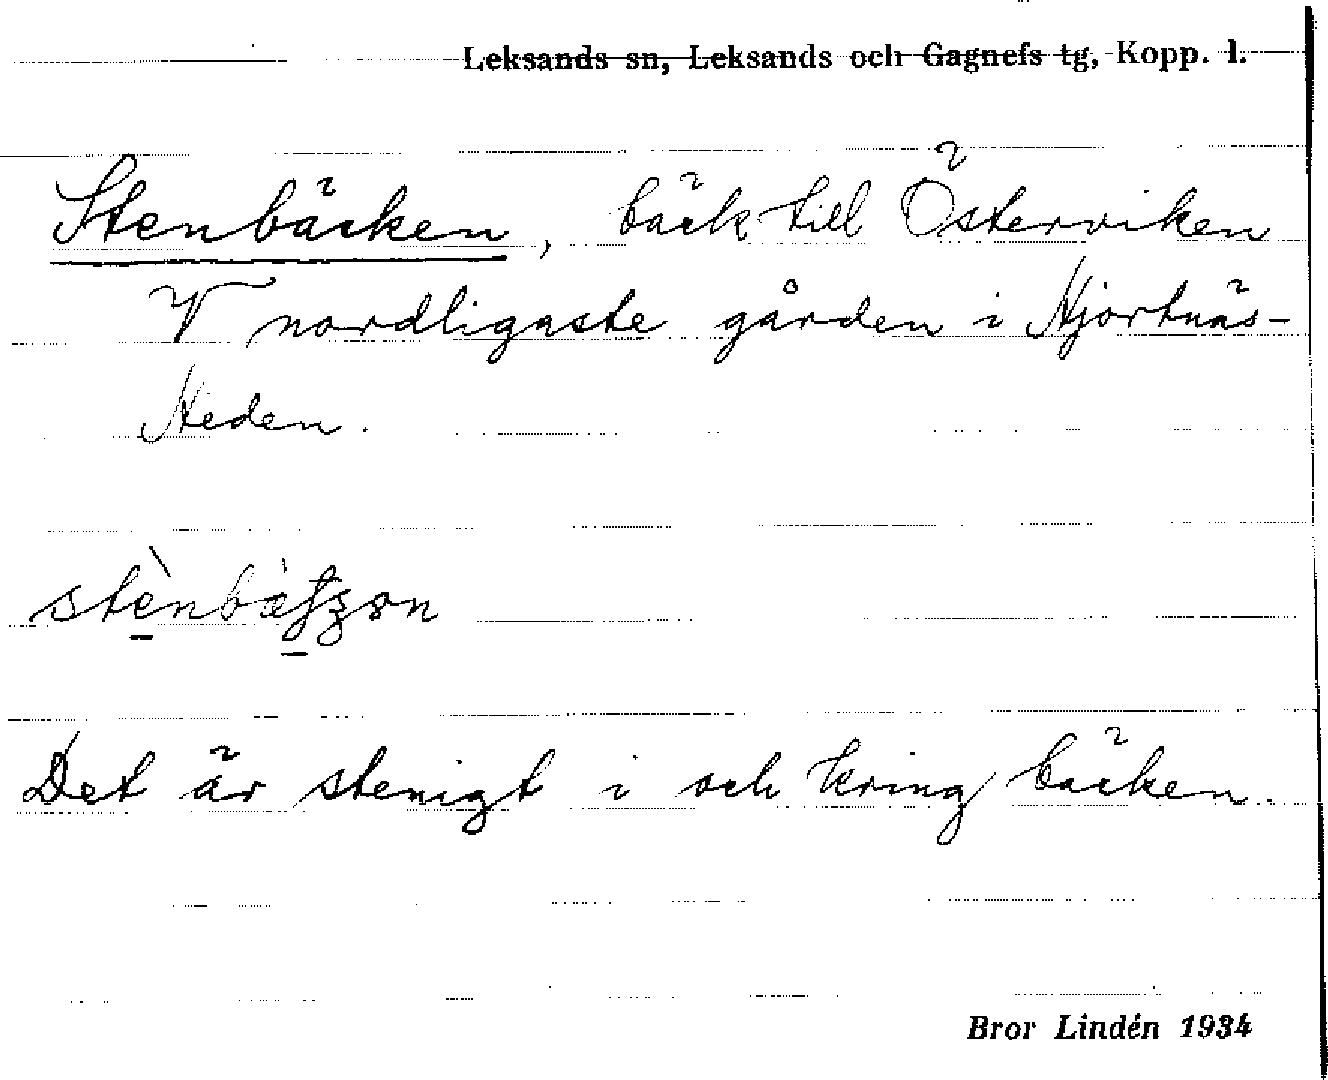 Leksands sn, Leksands och Gagnefs tg, Kopp. l.
Stenbäcken, bäck till Österviken
V nordligaste gården i Hjortnäs-
Heden.
Det är stenigt i och kring bäcken.
Bror Lindén 1934